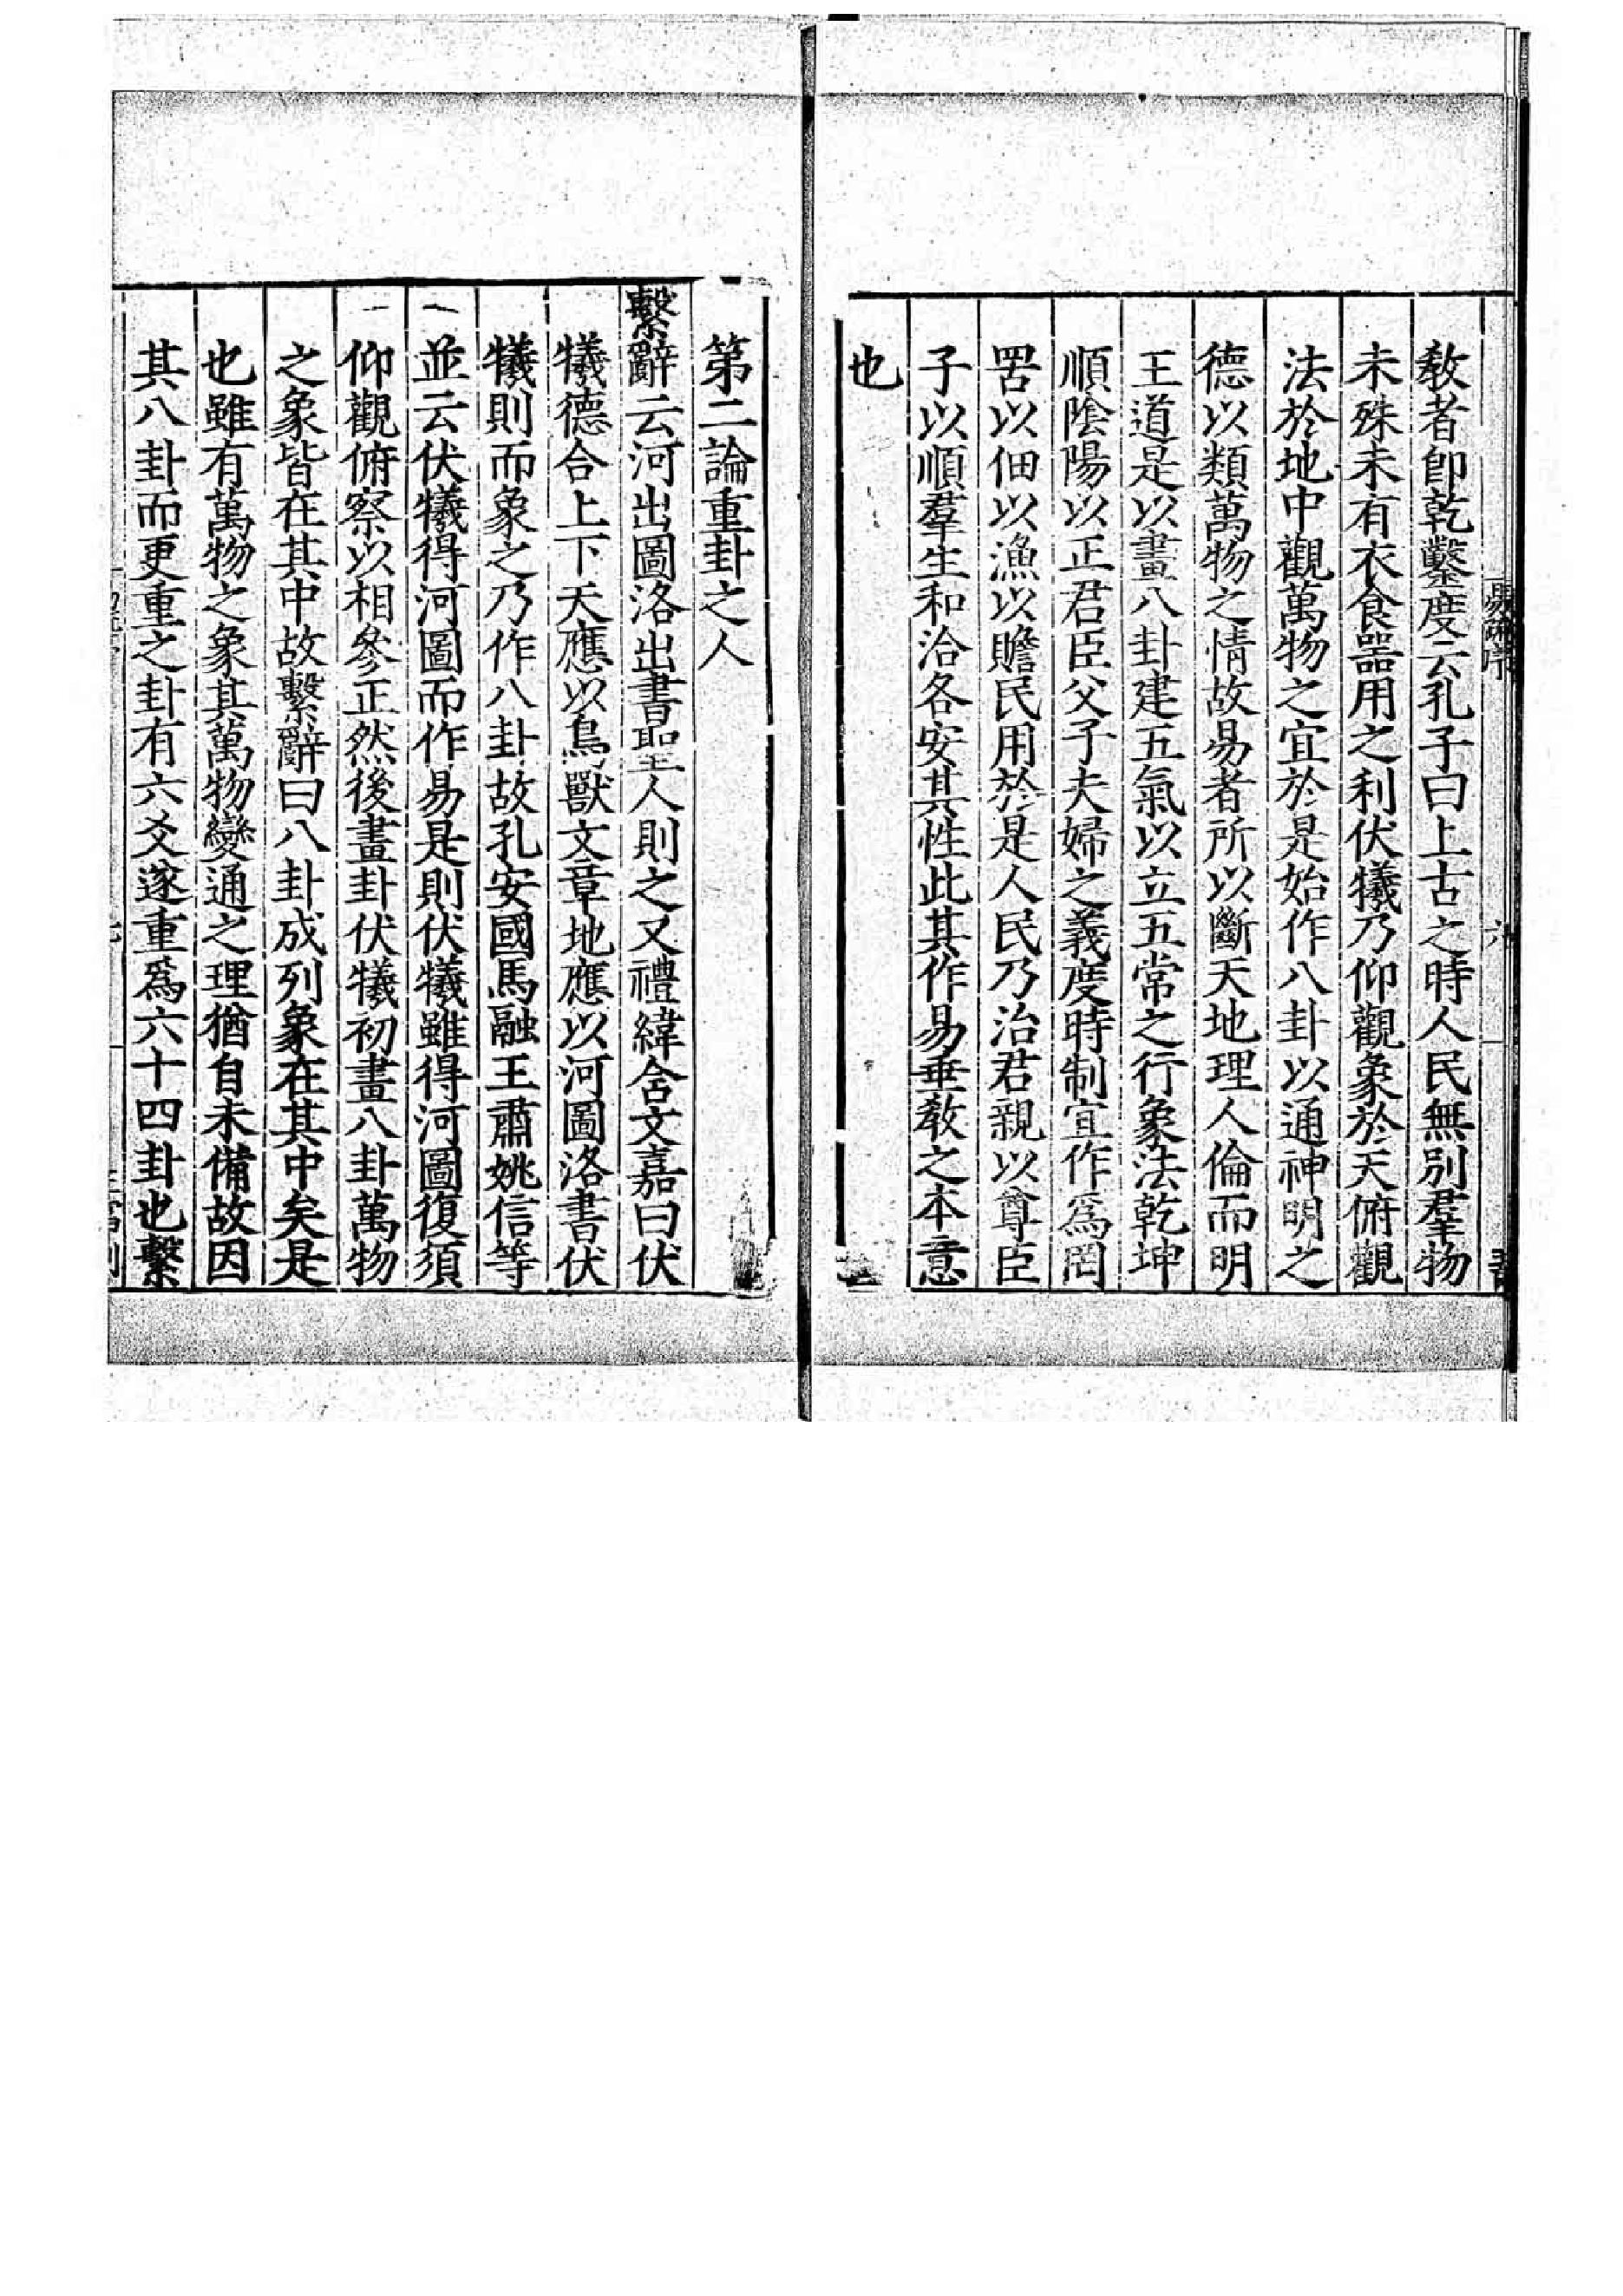 易疏序 六
教者即乾鑿度云孔子曰上古之時人民無別羣物
未殊未有衣食器用之利伏犧乃仰觀象於天俯觀
法於地中觀萬物之宜於是始作八卦以通神明之
德以類萬物之情故易者所以斷天地理人倫而明
王道是以畫八卦建五氣以立五常之行象法乾坤
順陰陽以正君臣父子夫婦之義度時制宜作爲罔
罟以佃以漁以贍民用於是人民乃治君親以尊臣
子以順羣生和洽各安其性此其作易垂教之本意
也
第二論重卦之人
繫辭云河出圖洛出書聖人則之又禮緯含文嘉曰伏
犧德合上下天應以鳥獸文章地應以河圖洛書伏
犧則而象之乃作八卦故孔安國馬融王肅姚信等
並云伏犧得河圖而作易是則伏犧雖得河圖復須
仰觀俯察以相參正然後畫卦伏犧初畫八卦萬物
之象皆在其中故繫辭曰八卦成列象在其中矣是
也雖有萬物之象其萬物變通之理猶自未備故因
其八卦而更重之卦有六爻遂重爲六十四卦也繫